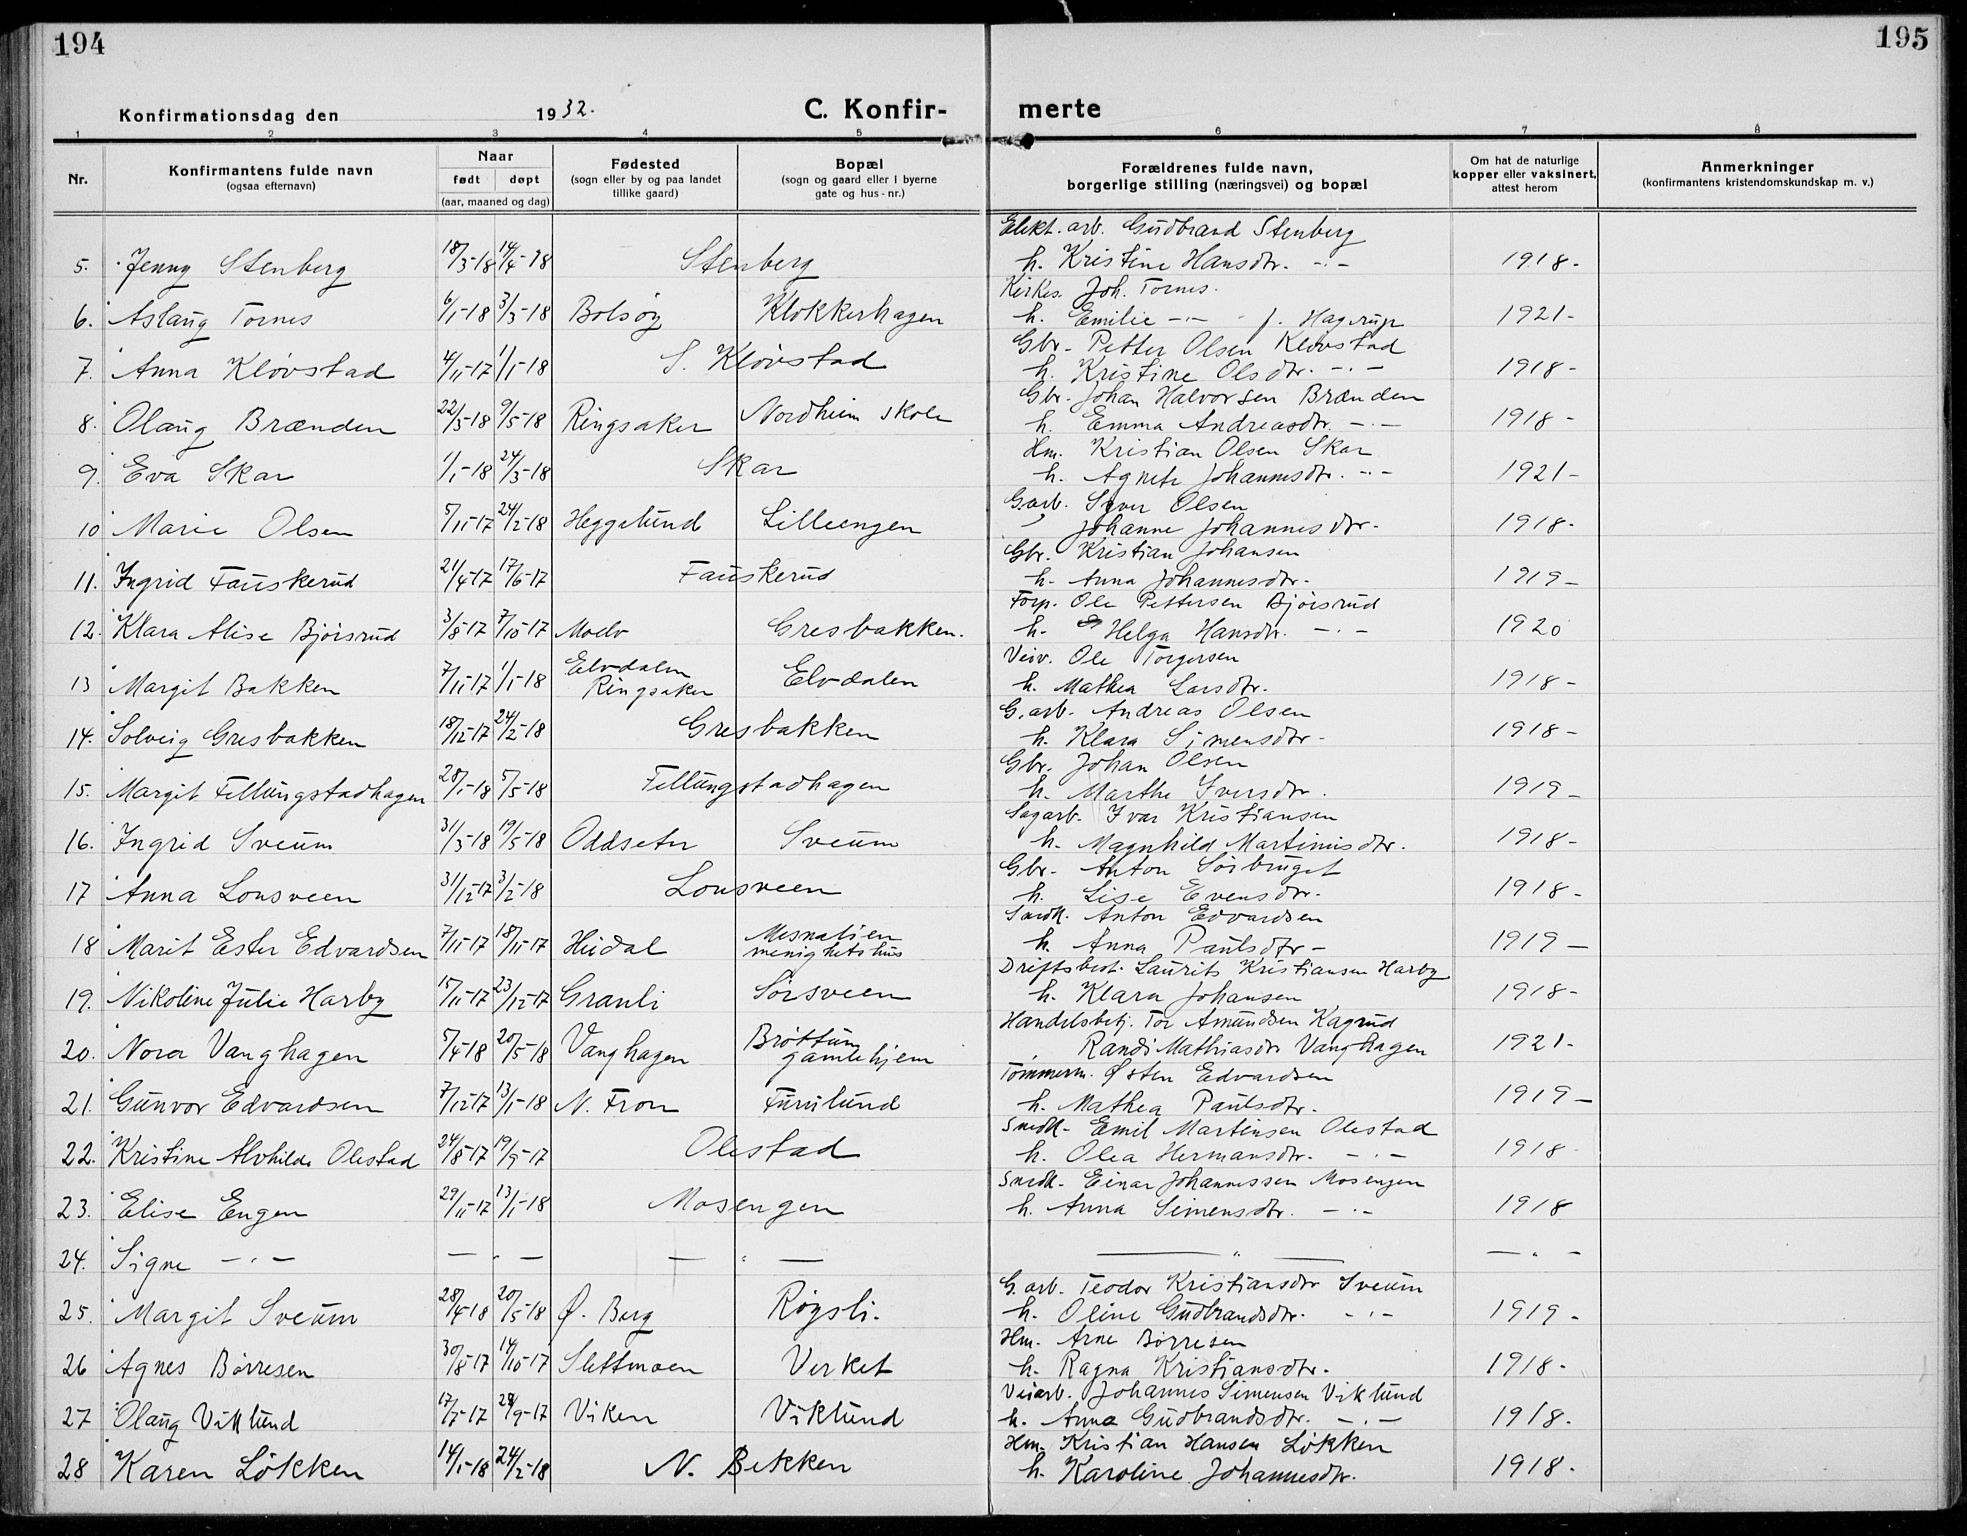 194
195
Konfirmationsdag den 1932.
C. Konfir-
merte
1 2 3 4 5 6 7 8
Nr.
Konfirmantens fulde navn
(ogsaa efternavn)
Naar
født døpt
(aar, maaned og dag)
Fødested
(sogn eller by og paa landet
tillike gaard)
Bopæl
(sogn og gaard eller i byerne
gate og hus-nr.)
Forældrenes fulde navn,
borgerlige stilling (næringsvei) og bopæl
Om hat de naturlige
kopper eller vaksinert,
attest herom
Anmerkninger
(konfirmantens kristendomskundskap m. v.)
Elekt. arb. Gudbrand Stenberg
5. Jenny Stenberg 18/3-18 14/4-18 Stenberg h. Kristine Hansdtr. -"- 1918-
Kirkes. Joh. Tornes.
6. Aslaug Tornes 6/1-18 3/3-18 Bolsøy Klokkerhagen h. Emilie -"- f. Hagerup 1921-
Gbr. Petter Olsen Kløvstad
7. Anna Kløvstad 4/11-17 1/1-18 S. Kløvstad h. Kristine Olsdtr. -"- 1918-
Gbr. Johan Halvorsen Brænden
8. Olaug Brænden 22/3-18 9/5-18 Ringsaker Nordheim skole h. Emma Andreasdtr. -"- 1918-
Hm. Kristian Olsen Skar
9. Eva Skar 1/1-18 24/3-18 Skar h. Agnete Johannesdtr. -"- 1921-
G.arb. Syver Olsen
10 Marie Olsen 5/11-17 24/2-18 Heggelund Lilleengen Johanne Johannesdtr. 1918-
Gbr. Kristian Johansen
11. Ingrid Fauskerud 21/4-17 17/6-17 Fauskerud h. Anna Johannesdtr. 1919-
Forp. Ole Pettersen Bjørsrud
12. Klara Alise Bjørsrud 3/8-17 7/10-17 Moelv Gresbakken. h. Helga Hansdtr. -"- 1920
Veiv. Ole Torgersen
13 Margit Bakken 7/11-17 1/1-18 Elvdalen Ringsaker Elvdalen h. Mathea Larsdtr. 1918-
G.arb. Andreas Olsen
14. Solveig Gresbakken 18/12-17 24/2-18 Gresbakken h. Klara Simensdtr. 1918-
Gbr. Johan Olsen
15. Margit Fellungstadhagen 28/1-18 5/5-18 Fellungstadhagen h. Marthe Iversdtr. 1919-
Sagarb. Ivar Kristiansen
16. Ingrid Sveum 31/3-18 19/5-18 Oddseter Sveum h. Magnhild Martinusdtr. 1918-
Gbr. Anton Sørbruget
17 Anna Lonsveen 31/12-17 3/2-18 Lonsveen h. Lise Evensdtr. 1918-
Snedk. Anton Edvardsen
18 Marit Ester Edvardsen 7/11-17 18/11-17 Heidal Mesnalien menighetshus h. Anna Paulsdtr- 1919-
Driftsbest. Laurits Kristiansen Harby
19. Nikoline Julie Harby 15/11-17 23/12-17 Granli Sørsveen h. Klara Johansen 1918-
Handelsbetj. Tor Amundsen Kagrud
20. Nora Vanghagen 5/4-18 20/5-18 Vanghagen Brøttum gamlehjem Randi Mathiasdtr Vanghagen 1921-
Tømmerm. Østen Edvardsen
21. Gunvor Edvardsen 7/12-17 13/1-18 N. Fron Furulund h. Mathea Paulsdtr. 1919-
Snedk. Emil Martinsen Olestad
22. Kristine Alvhilde Olestad 24/8-17 19/9-17 Olestad h. Olea Hermansdtr. -"- 1918
Snedk. Einar Johannessen Mosengen
23. Elise Engen 29/11-17 13/1-18 Mosengen h. Anna Simensdtr. -"- 1918
24. Signe -"- -"- -"- -"- -"-
G.arb. Teodor Kristiansdtr Sveum
25. Margit Sveum 28/4-18 20/5-18 Ø. Berg Røysli. h. Oline Gudbrandsdtr. -"- 1919-
Hm. Arne Børresen
26 Agnes Børresen 30/8-17 14/10-17 Slettmoen Verket h. Ragna Kristiansdtr. 1918-
Veiarb. Johannes Simensen Viklund
27 Olaug Viklund 17/7-17 29/9-17 Viken Viklund h. Anna Gudbrandsdtr. -"- 1918.
Hm. Kristian Hansen Løkken
28 Karen Løkken 14/1-18 24/2-18 N. Bekken h. Karoline Johannesdtr. 1918-